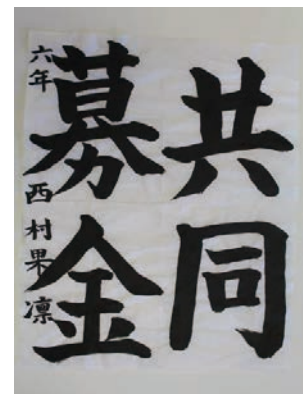 共同
募金
六年 西村果凛